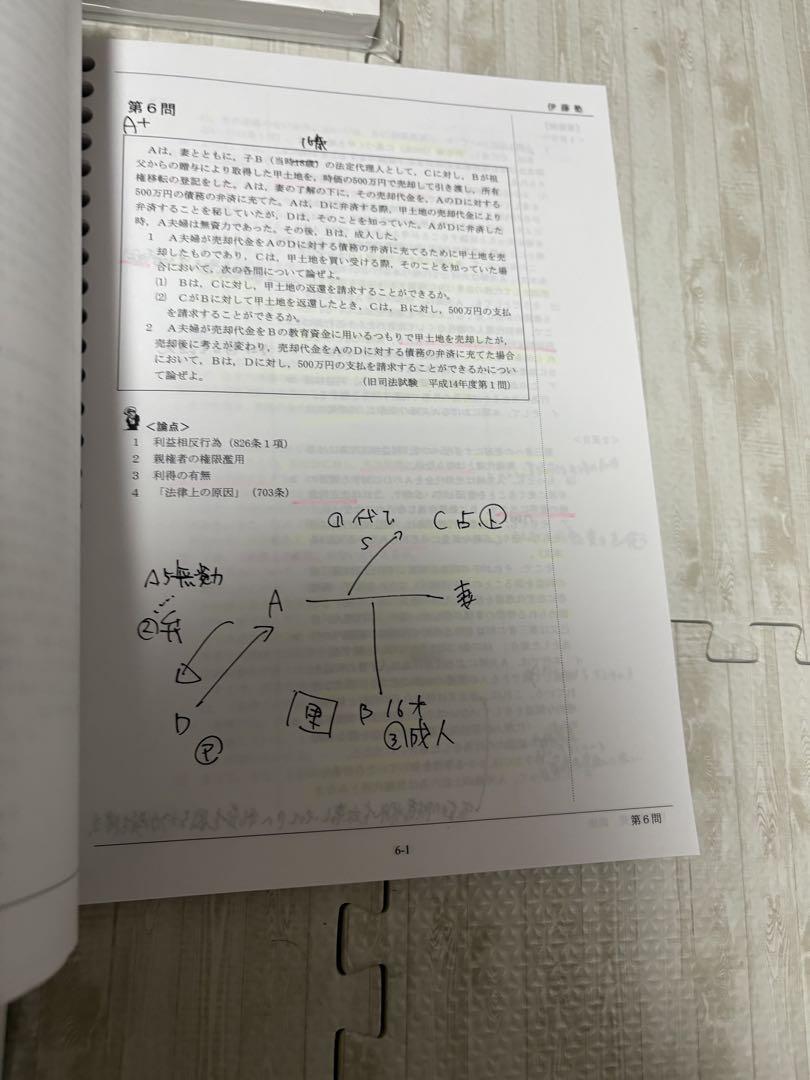 伊藤塾
第6問
A+
16歳
Aは，妻とともに，子B（当時18歳）の法定代理人として，Cに対し，Bが祖
父からの贈与により取得した甲土地を，時価の500万円で売却して引き渡し，所有
権移転の登記をした。Aは，妻の了解の下に，その売却代金を，AのDに対する
500万円の債務の弁済に充てた。Aは，Dに弁済する際，甲土地の売却代金により
弁済することを秘していたが，Dは，そのことを知っていた。AがDに弁済した
時，A夫婦は無資力であった。その後，Bは，成人した。
1　A夫婦が売却代金をAのDに対する債務の弁済に充てるために甲土地を売
却したものであり，Cは，甲土地を買い受ける際，そのことを知っていた場
合において，次の各問について論ぜよ。
(1)　Bは，Cに対し，甲土地の返還を請求することができるか。
(2)　CがBに対して甲土地を返還したとき，Cは，Bに対し，500万円の支払
を請求することができるか。
2　A夫婦が売却代金をBの教育資金に用いるつもりで甲土地を売却したが，
売却後に考えが変わり，売却代金をAのDに対する債務の弁済に充てた場合
において，Bは，Dに対し，500万円の支払を請求することができるかについ
て論ぜよ。
（旧司法試験　平成14年度第1問）
＜論点＞
1　利益相反行為（826条1項）
2　親権者の権限濫用
3　利得の有無
4　「法律上の原因」（703条）
① 代て
C 占,上
S
Aら無資力
A
妻
②弁
D
甲
B 16才
③成人
第6問
6-1